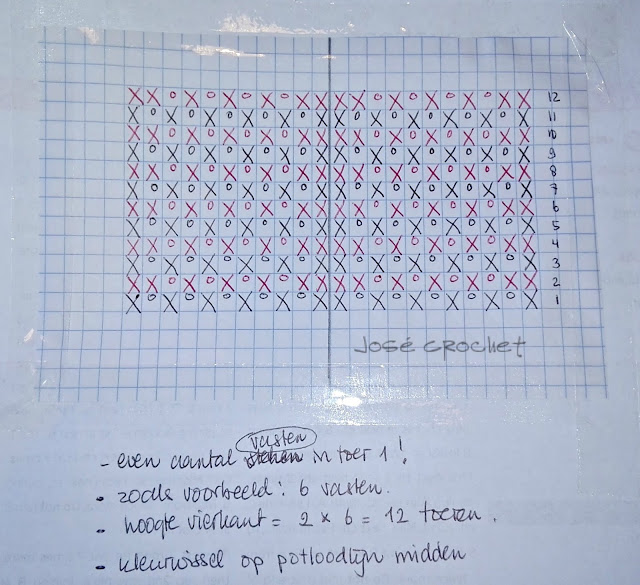 12
11
10
9
8
7
6
5
4
3
2
1
José Crochet
vasten
- even aantal in toer 1!
- zoals voorbeeld: 6 vasten.
- hoogte vierkant = 2 x 6 = 12 toeren.
- kleurwissel op potloodlijn midden